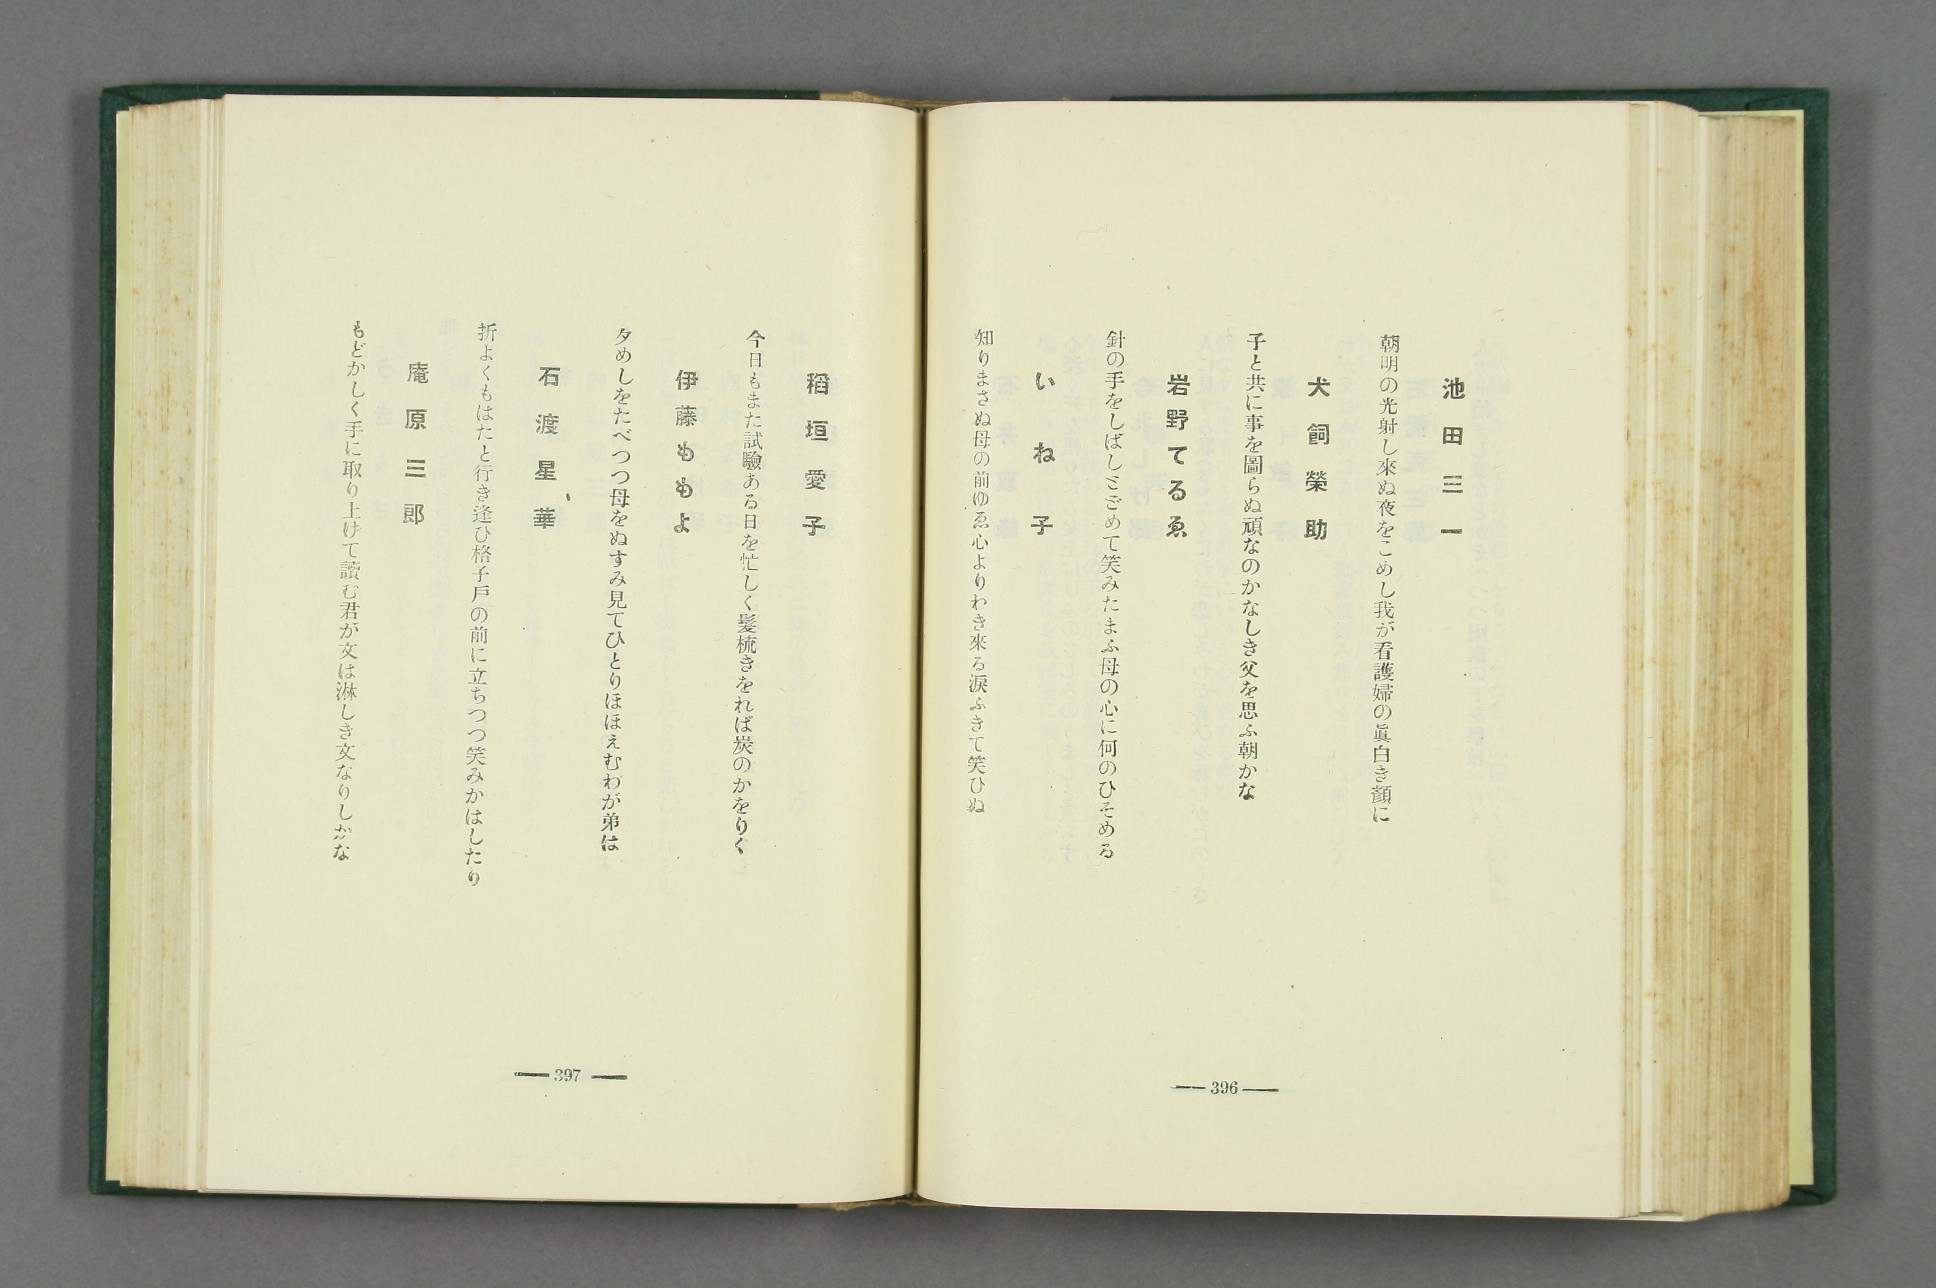 池田三一
朝明の光射し來ぬ夜をこめし我が看護婦の眞白き顏に
犬飼榮助
子と共に事を圖らぬ頑なのかなしき父を思ふ朝かな
岩野てるゑ
針の手をしばしとゞめて笑みたまふ母の心に何のひそめる
いね子
知りまさぬ母の前ゆゑ心よりわき來る涙ふきて笑ひぬ
396
稻垣愛子
今日もまた試驗ある日を忙しく髮梳きをれば炭のかをりく
伊藤ももよ
夕めしをたべつつ母をぬすみ見てひとりほほえむわが弟は
石渡星華
折よくもはたと行き逢ひ格子戸の前に立ちつつ笑みかはしたり
庵原三郎
もどかしく手に取り上げて讀む君が文は淋しき文なりしかな
397